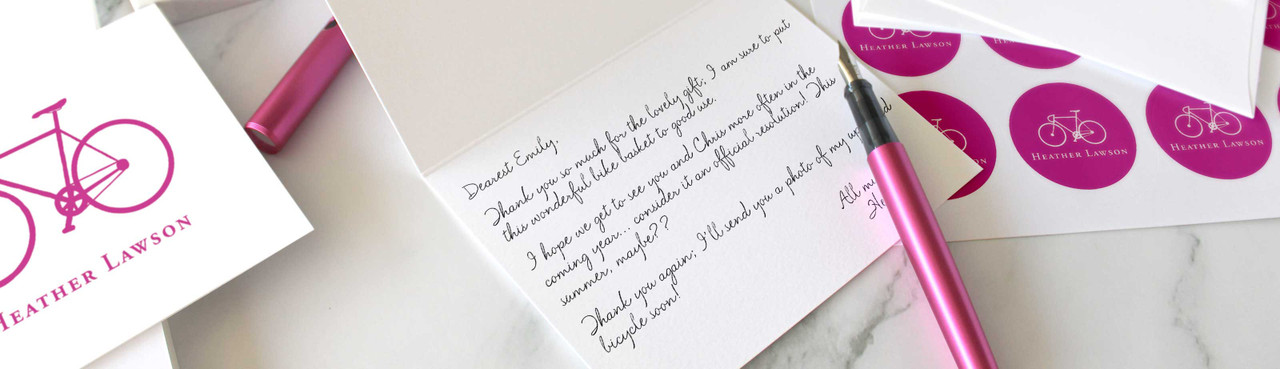 HEATHER LAWSON
Dearest Emily,
Thank you so much for the lovely gift; I am sure to put
this wonderful bike basket to good use.
I hope we get to see you and Chris more often in the
coming year... consider it an official resolution! This
summer, maybe??
Thank you again; I'll send you a photo of my
bicycle soon!
All
HEATHER LAWSON
HEATHER LAWSON
HEATHER LAWSON